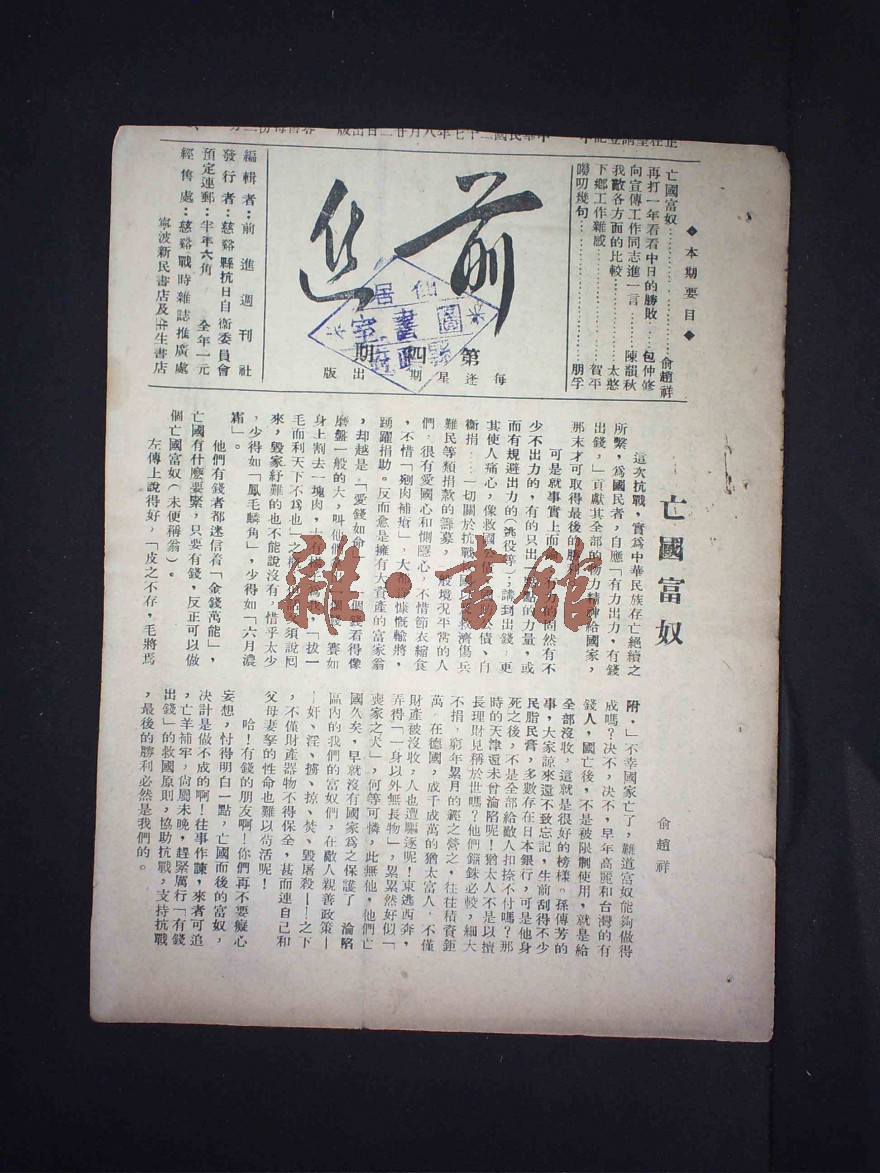 中華民國二十七年八月廿二日出版
◆本期要目◆
亡國富奴…俞趙祥
再打一年看看中日的勝敗…包仲修
向宣傳工作同志進一言…陳韻秋
我敵各方面的比較…太憨
下鄉工作雜感…賀平
嘮叨幾句…朋孚
前進
第四期
每逢星期出版
編輯者：前進週刊社
發行者：慈谿縣抗日自衛委員會
預定連郵：半年六角　全年一元
經售處：慈谿戰時雜誌推廣處
寧波新民書店及生書店
亡國富奴
俞趙祥
這次抗戰，實爲中華民族存亡絕續之
所繫，爲國民者，自應「有力出力，有錢
出錢，」貢獻其全部的物力精神給國家，
那末才可取得最後的勝
可是就事實上而力的固然有不
少不出力的，有的只出點的力量，或
而有規避出力的（逃役等）；講到出錢，更
其使人痛心，像救國公債債、自
衛捐……一切關於抗戰救濟傷兵
難民等類捐款的籌募，般境況平常的人
們，很有愛國心和惻隱心，不惜節衣縮食
，不惜「剜肉補瘡」，大都慷慨輸將，
踴躍捐助。反而愈是擁有大資產的富家翁
，却越是「愛錢如命」個錢看得像
磨盤一般的大，叫他要如
身上割去一塊肉，大有「拔一
毛而利天下不爲也」之須說囘
來，毀家紓難的也不能說沒有，惜乎太少
，少得如「鳳毛麟角」，少得如「六月濃
霜」。
他們有錢者都迷信着「金錢萬能」，
亡國有什麽要緊，只要有錢，反正可以做
個亡國富奴（未便稱翁）。
左傳上說得好，「皮之不存，毛將焉
附，」不幸國家亡了，難道富奴能夠做得
成嗎？決不，決不，早年高麗和台灣的有
錢人，國亡後，不是被限制使用，就是給
全部沒收，這就是很好的榜樣。孫傳芳的
事，大家諒來還不致忘記，生前刮得不少
民脂民膏，多數存在日本銀行，可是他身
死之後，不是全部給敵人扣捺不付嗎？那
時的天津還未曾淪陷呢！猶太人不是以擅
長理財見稱於世嗎？他們錙銖必較，細大
不捐，窮年累月的經之營之，往往積資鉅
萬，在德國，成千成萬的猶太富人，不僅
財產被沒收，人也遭驅逐呢！東逃西奔，
弄得「一身以外無長物」，累累然好似「
喪家之犬」，何等可憐，此無他，他們亡
國久矣，早就沒有國家爲之保護了，淪陷
區內的我們的富奴們，在敵人親善政策—
—奸、淫、擄、掠、焚、毀屠殺——之下
，不僅財產器物不得保全，甚而連自己和
父母妻孥的性命也難以苟活呢！
哈！有錢的朋友啊！你們再不要癡心
妄想，忖得明白一點，亡國而後的富奴，
決計是做不成的啊！往事作諫，來者可追
，亡羊補牢，尚屬未晚，趕緊厲行「有錢
出錢」的救國原則，協助抗戰，支持抗戰
，最後的勝利必然是我們的。
雜·書館